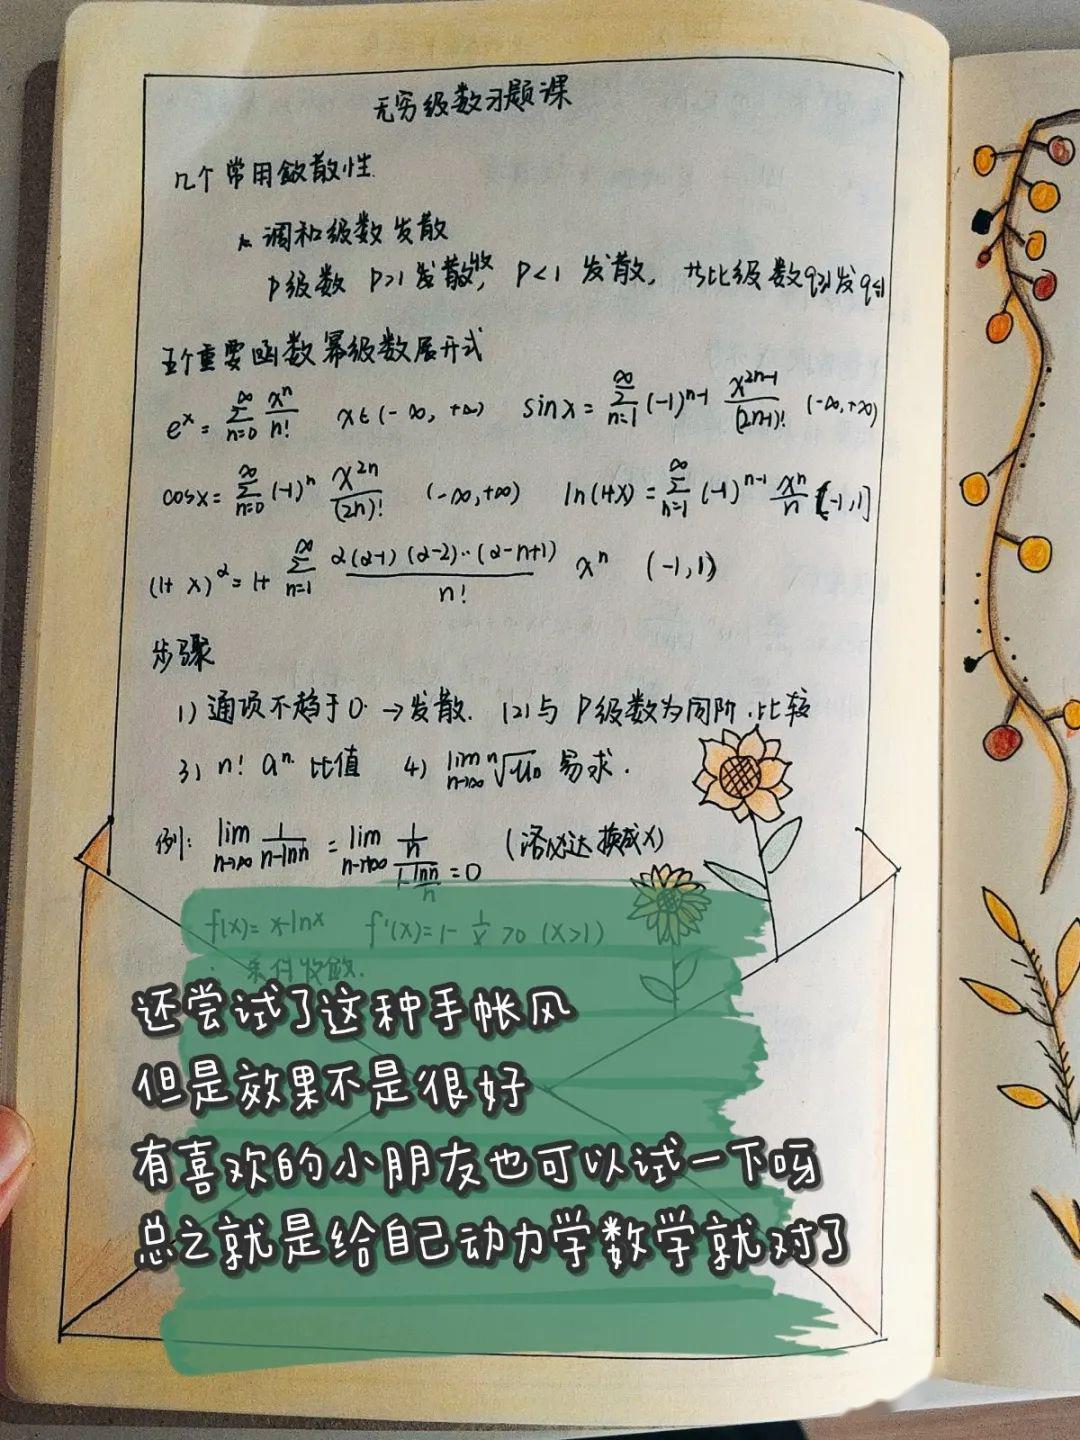 无穷级数习题课
几个常用敛散性.
1. 调和级数发散
P级数 P>1发散收, P<1 发散, 等比级数q≥1发q<1
五个重要函数幂级数展开式
e^x = ∑_{n=0}^{∞} x^n/n! x∈(-∞, +∞) sinx = ∑_{n=1}^{∞} (-1)^{n-1} x^{2n-1}/(2n-1)! (-∞,+∞)
cosx = ∑_{n=0}^{∞} (-1)^n x^{2n}/(2n)! (-∞,+∞) ln(1+x) = ∑_{n=1}^{∞} (-1)^{n-1} x^n/n (-1,1]
(1+x)^α = 1+ ∑_{n=1}^{∞} α(α-1)(α-2)··(α-n+1)/n! x^n (-1,1)
步骤
1) 通项不趋于0. → 发散. (2) 与 P级数为同阶.比较
3) n! a^n. 比值 4) lim_{n→∞} ^n√u_n 易求.
例: lim_{n→∞} 1/(n-lnn) = lim_{n→∞} (1/n)/(1-lnn/n) = 0 (洛必达 换成x)
f(x)= x-lnx f'(x)=1- 1/x >0 (x>1)
条件收敛.
还尝试了这种手帐风
但是效果不是很好
有喜欢的小朋友也可以试一下呀
总之就是给自己动力学数学就对了